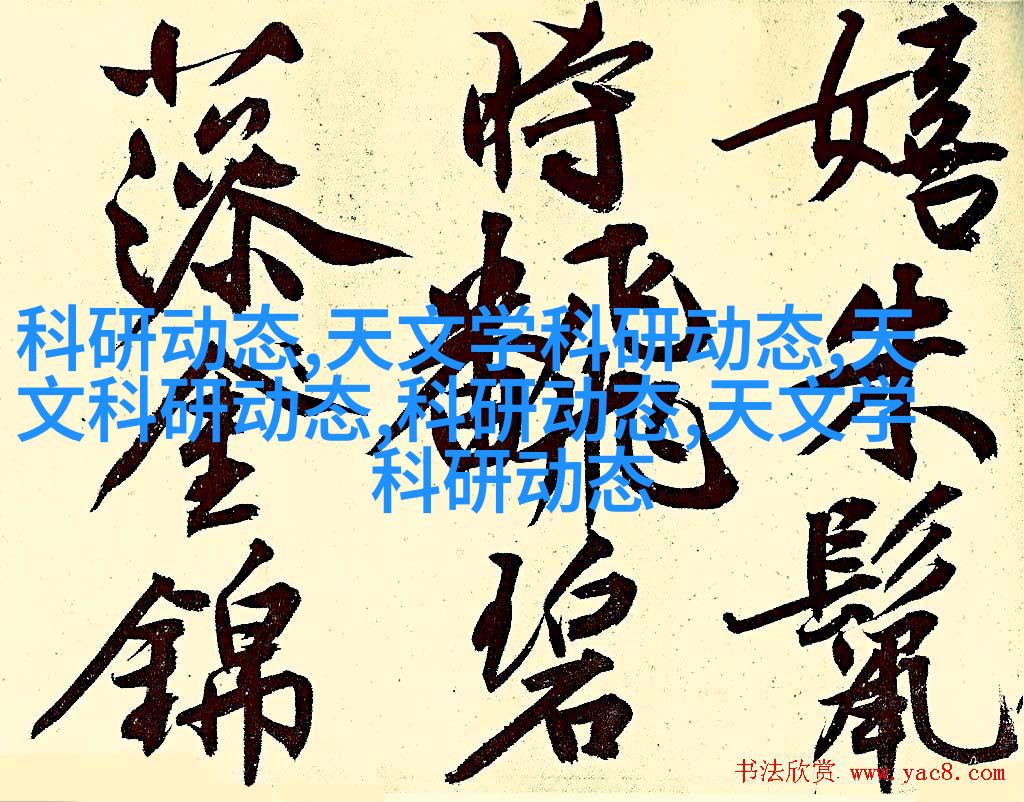 嬉朱鬣
時翻碧
藻全錦
科研动态,天文学科研动态,天
文科研动态,科研动态,天文学
科研动态
书法欣赏 www.yac8.com